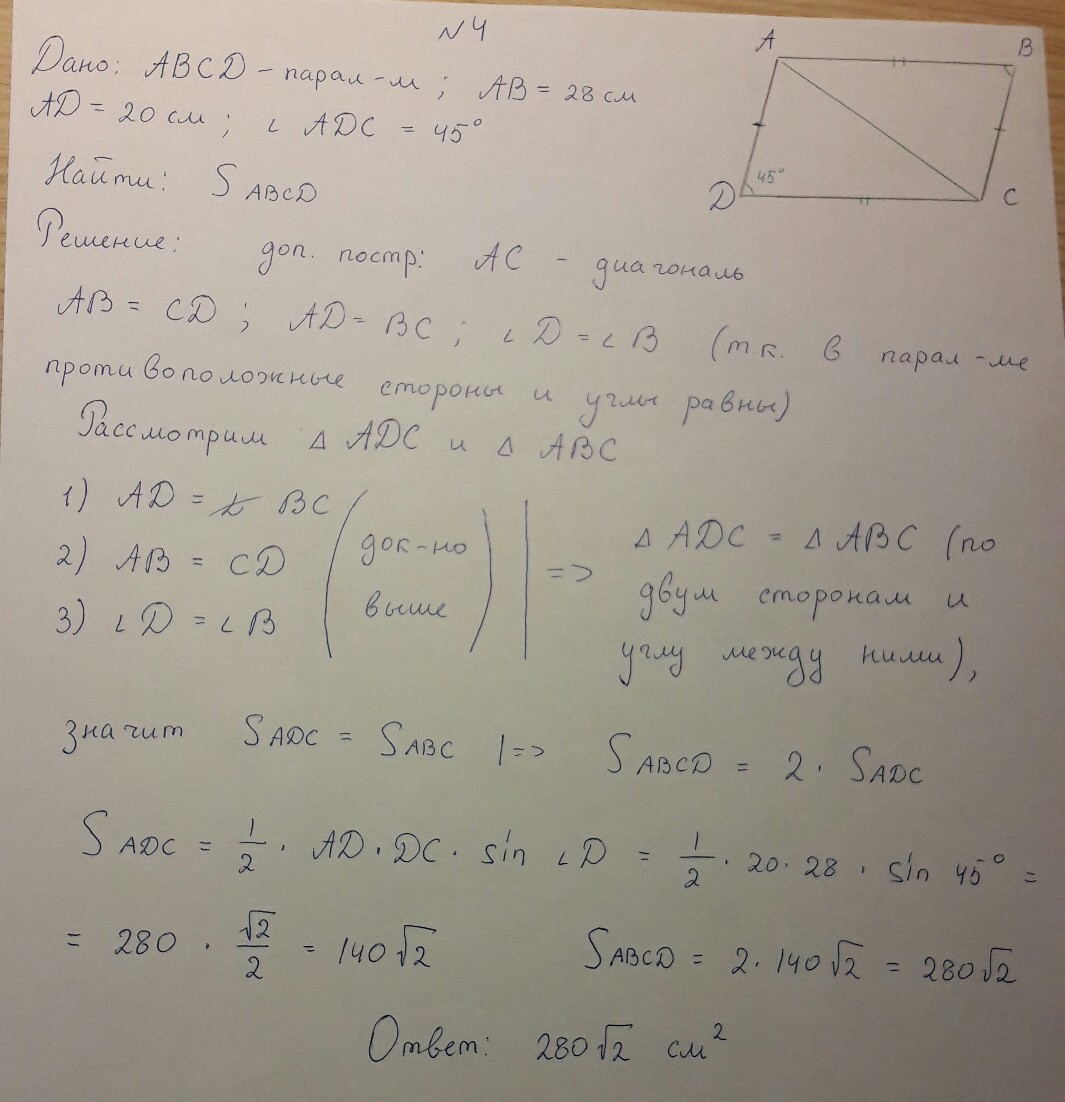 N4
Дано: ABCD - парал-м ; AB = 28 см
AD = 20 см ; ∠ ADC = 45°
Найти: S ABCD
Решение: доп. постр: AC - диагональ
AB = CD ; AD = BC ; ∠ D = ∠ B (т.к. в парал-ме
противоположные стороны и углы равны)
Рассмотрим Δ ADC и Δ ABC
1) AD = BC
2) AB = CD
3) ∠ D = ∠ B
(док-но
выше)
=> Δ ADC = Δ ABC (по
двум сторонам и
углу между ними),
значит S ADC = S ABC |=> S ABCD = 2 · S ADC
S ADC = 1/2 · AD · DC · sin ∠ D = 1/2 · 20 · 28 · sin 45° =
= 280 · √2/2 = 140√2 S ABCD = 2 · 140√2 = 280√2
Ответ: 280√2 см²
A
B
D
45°
C